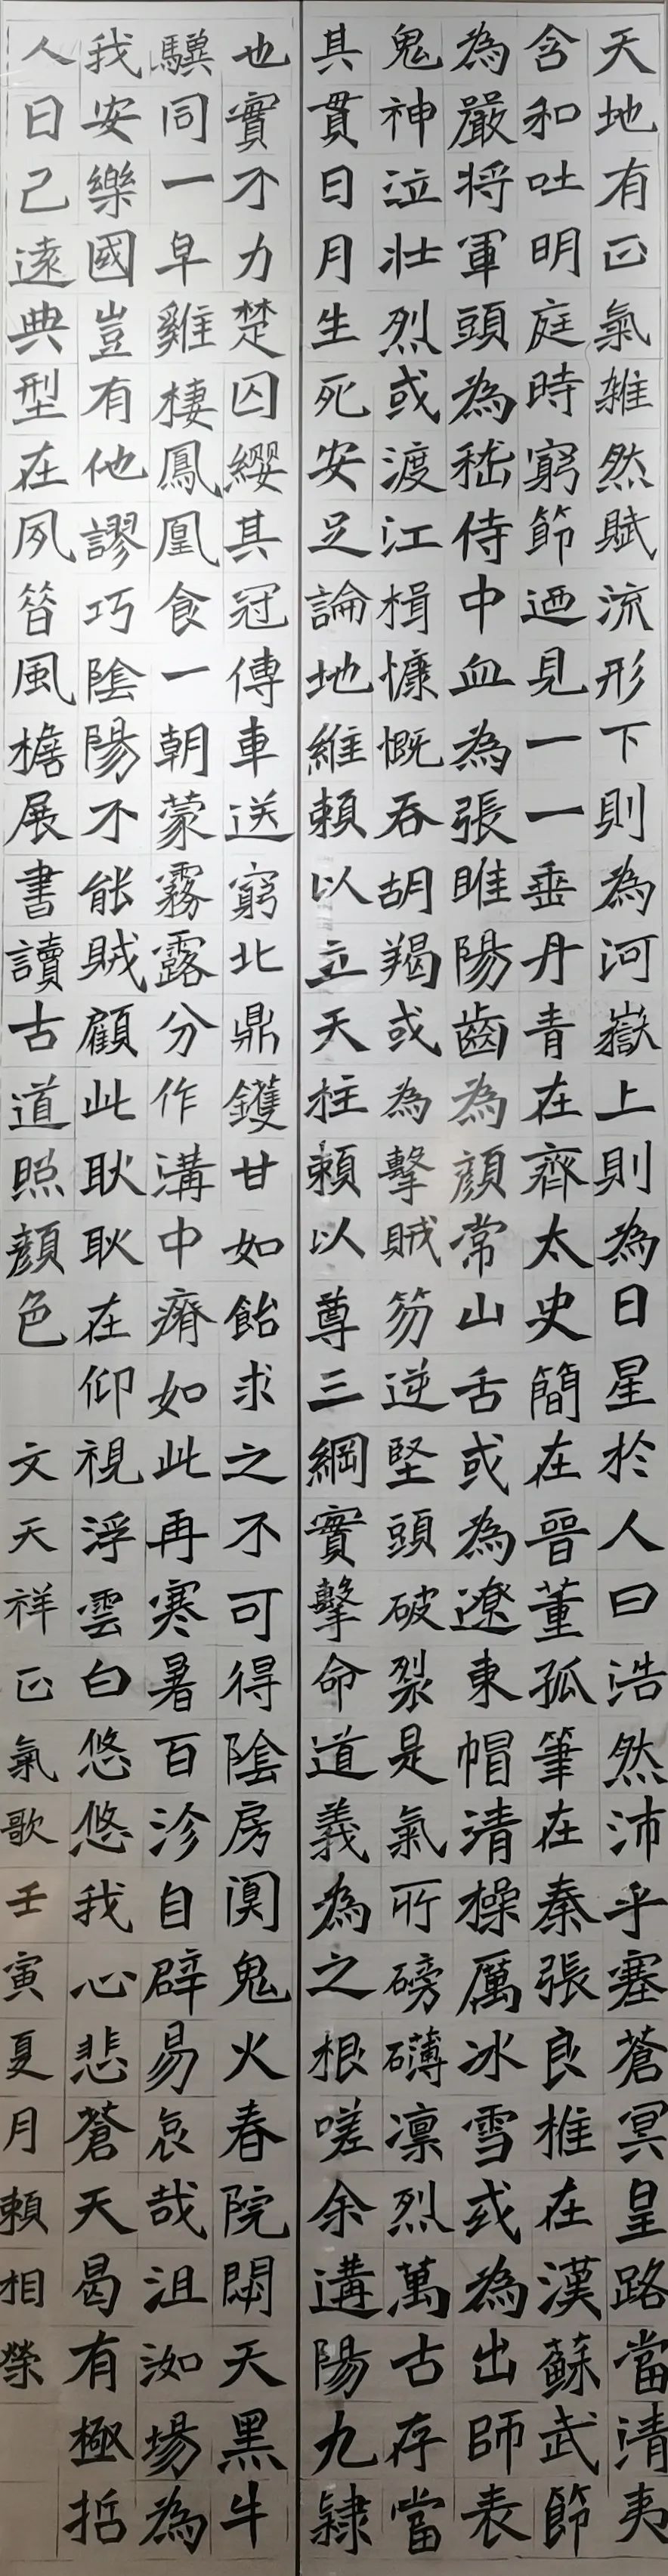 天地有正氣雜然賦流形下則為河嶽上則為日星於人曰浩然沛乎塞蒼冥皇路當清夷
含和吐明庭時窮節迺見一一垂丹青在齊太史簡在晉董孤筆在秦張良推在漢蘇武節
為嚴將軍頭為嵇侍中血為張睢陽齒為顔常山舌或為遼東帽清操厲冰雪或為出師表
鬼神泣壯烈或渡江楫慷慨吞胡羯或為擊賊笏逆堅頭破裂是氣所磅礴凛烈萬古存當
其貫日月生死安足論地維賴以立天柱賴以尊三綱實擊命道義為之根嗟余遘陽九隸
也實不力楚囚纓其冠傳車送窮北鼎鑊甘如飴求之不可得陰房闃鬼火春院閟天黑牛
驥同一早雞棲鳳凰食一朝蒙霧露分作溝中瘠如此再寒暑百沴自辟易哀哉沮洳場為
我安樂國豈有他謬巧陰陽不能賊顧此耿耿在仰視浮雲白悠悠我心悲蒼天曷有極哲
人日己遠典型在夙昔風檐展書讀古道照顔色
文天祥正氣歌壬寅夏月賴相榮